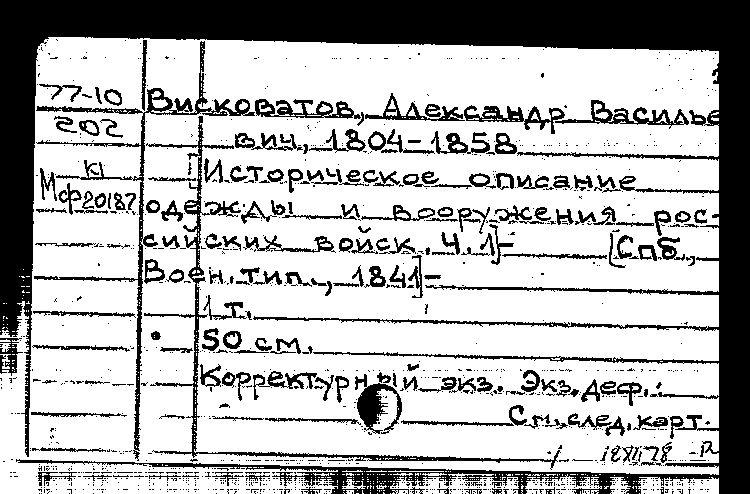 77-10 Висковатов, Александр Василье
202 вич, 1804-1858
К1 [Историческое описание
Мф20187 одежды и вооружения рос-
сийских войск. Ч.1]- [Спб.,
Воен.тип., 1841]-
1 т.
50 см.
Корректурный экз. Экз.деф.:
См.след.карт.